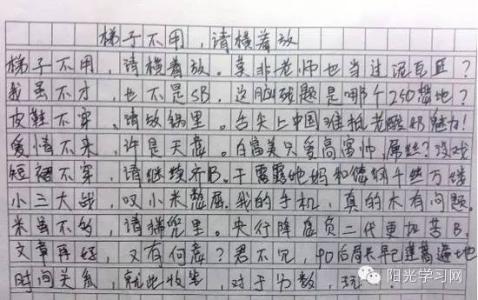 梯子不用，请横着放
梯子不用，请横着放。莫非老师也当过泥瓦匠？
我虽不才，也不是SB，这脑残题是哪个250落地？
皮鞋不穿，请放锅里。舌尖上中国，老酸奶魅力！
爱情不来，许是天意。白富美只爱高富帅，屌丝？没戏
短裙不穿，请继续齐B。干露露她妈和你妈千丝万缕
小三大战，叹小米整屏。我的手机，真的木有问题。
米虽不多，请揣兜里。央行降息负二代更加苦B。
文章再好，又有何意？君不见，90后局长早已蓬蒿遍地
时间关系，就此收笔，对于分数，
阳光学习网